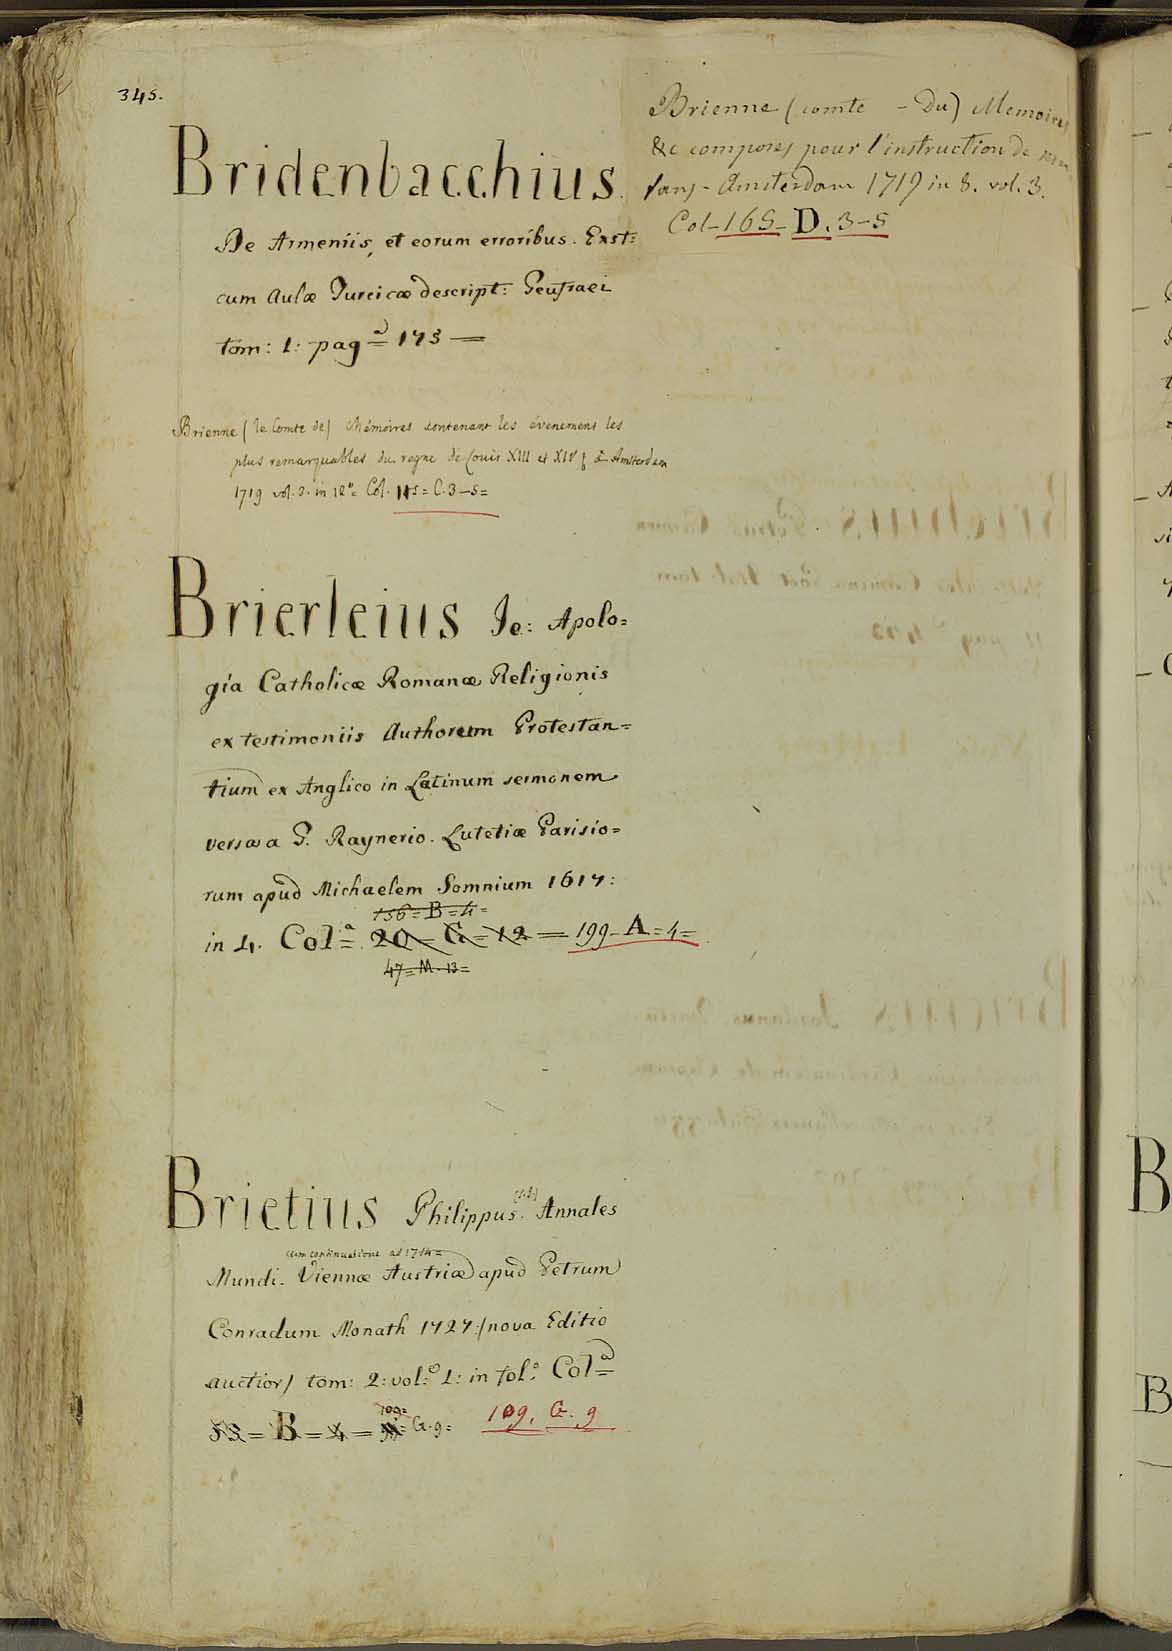 345.
Bridenbacchius.
De Armeniis, et eorum erroribus. Exst:
cum Aulæ Turcicæ descript: Geufraei
tom: 1: pag.ª 173 —
Brienne (comte - Du) Memoires
&c composes pour l'instruction de
Amsterdam 1719 in 8. vol. 3.
Col- 165- D. 3-5
Brienne (le Comte de) Mémoires contenant les évenemens les
plus remarquables du regne de Louis XIII et XIV à Amsterdam
1719 vol. 3. in 12º Col. 115= C. 3-5=
Brierleius Jo: Apolo=
gia Catholicæ Romanæ Religionis
ex testimoniis Authorum Protestan=
tium ex Anglico in Latinum sermonem
versa a G. Raynerio. Lutetiæ Parisio=
rum apud Michaelem Somnium 1617:
156=B=4=
in 4. Colª= 20=G=12 = 199-A=4=
47=M-13=
Brietius Philippus. Annales
cum continuatione ad 1714=
Mundi. Viennæ Austriæ apud Petrum
Conradum Monath 1727:/nova Editio
auctior/ tom: 2: vol.º 1: in fol.º Colª=
109=
53=B=4= G.9= 109. G. 9